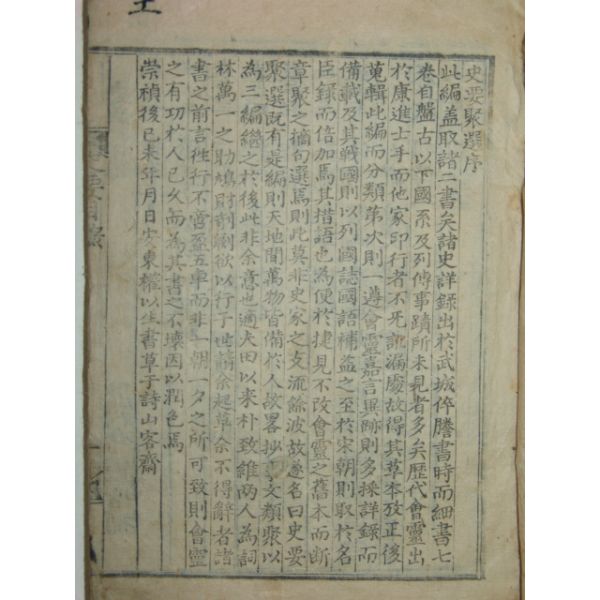 史要聚選序
此編盖取諸二書矣諸史詳錄出於武城倅謄書時而細書七
卷自盤古以下國系及列傳事蹟所未見者多矣歷代會靈出
於康進士手而他家印行者不死訛漏處故得其草本攷正後
蒐輯此編而分類第次則一遵會靈嘉言異跡則多採詳錄而
備載及其戰國則以列國誌國語補益之至於宋朝則取於名
臣錄而倍加焉其措語也為便於捷見不改會靈之舊本而断
章聚之摘句選焉則此莫非史家之支流餘波故遂名曰史要
聚選既有是編則天地間萬物皆備於人故畧抄文類聚以
為三編繼之於後此非余意也適失田以采朴致維兩人為詞
林萬一之助鳩財剞劂欲以行于世請余起草余不得辭者諸
書之前言徃行不啻盈五車而非一朝一夕之所可致則會靈
之有功扵人已久而為其書之不壞因以潤色焉
崇禎後己未年月日安東權以生書草于詩山客齋